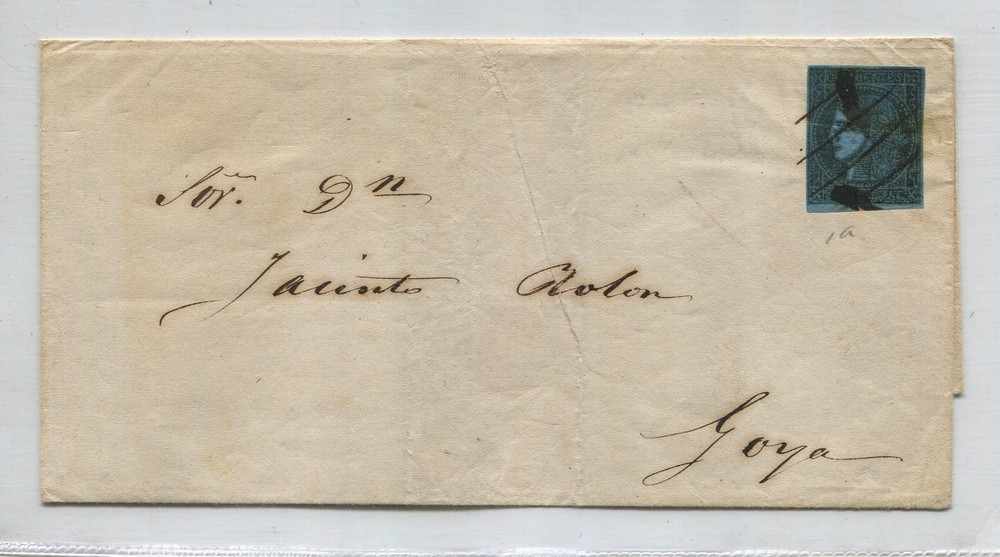 Sor. Dn
Jacinto Rolon
Goya
1a